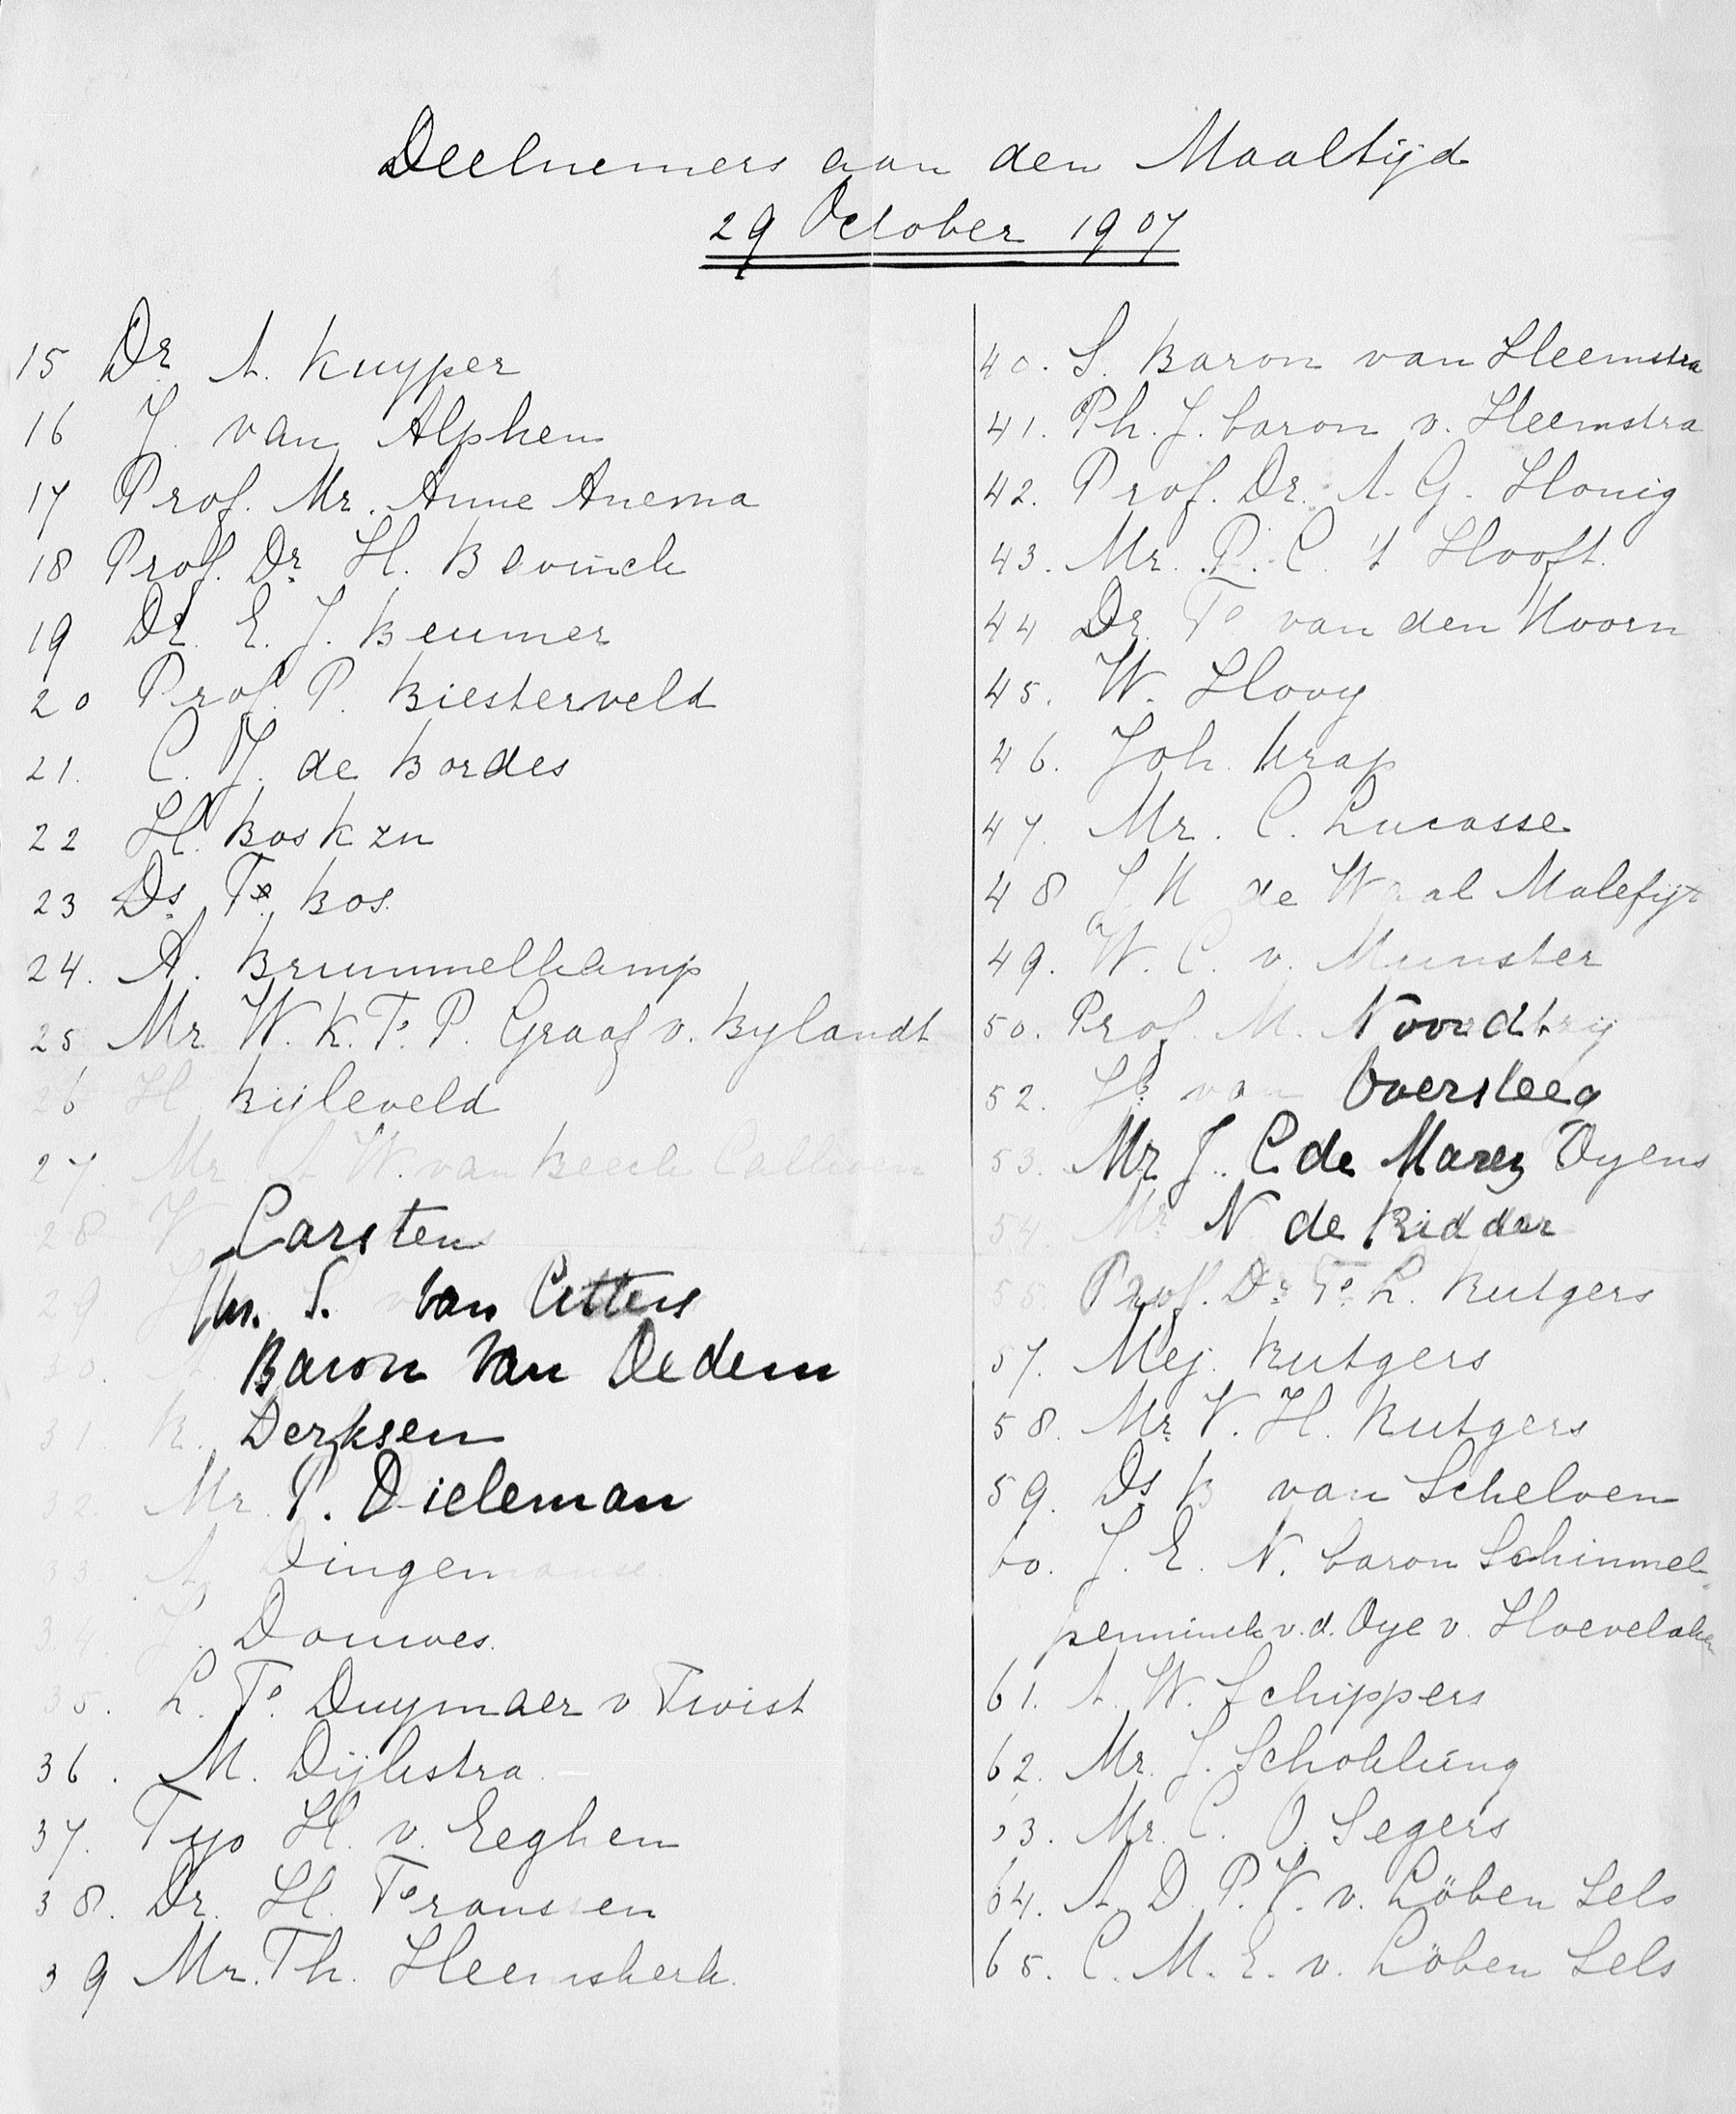 Deelnemers aan den Maaltijd
29 October 1907
15 Dr. A. Kuyper
16 J. van Alphen
17 Prof. Mr. Anne Anema
18 Prof. Dr. H. Bavinck
19 Dr. E. J. Beumer
20 Prof. P. Biesterveld
21. C. J. de Bordes
22 H. Bos Kzn
23 Ds. F. Bos.
24. A. Brummelkamp
25 Mr. W. K. F. P. Graaf v. Bylandt
26 H. Bijleveld
27. Mr. A. W. van Beeck Calkoen
28 Carsten
29 Mr. S. van Citters
30. Baron van Dedem
31. K. Derksen
32. Mr. P. Dieleman
33. A. Dingemanse.
34. Douwes.
35. L. F. Duymaer v. Twist
36. M. Dijkstra
37. Tyo H. v. Eeghen
38. Dr. H. Franssen
39 Mr. Th. Heemskerk.
40. S. Baron van Heemstra
41. Ph. J. baron v. Heemstra
42. Prof. Dr. A. G. Honig
43. Mr. P. C. 't Hooft.
44 Dr. F. van den Hoorn
45. W. Hovy
46. Joh. Krap
47. Mr. C. Lucasse
48 J. H. de Waal Malefijt
49. W. C. v. Munster
50. Prof. M. Noordtzij
52. H. van Oversteeg
53. Mr J. C de Marez Oyens
54 Mr. N de Ridder
55 Prof. Dr. F. L. Rutgers
57. Mej. Rutgers
58. Mr. V. H. Rutgers
59. Ds. B van Schelven
60. J. E. N. baron Schimmel-
penninck v. d. Oye v. Hoevelaken
61. A. W. Schippers
62. Mr. J. Schokking
63. Mr. C. O. Segers
64. A. D. P. V. v. Löben Sels
65. C. M. E. v. Löben Sels